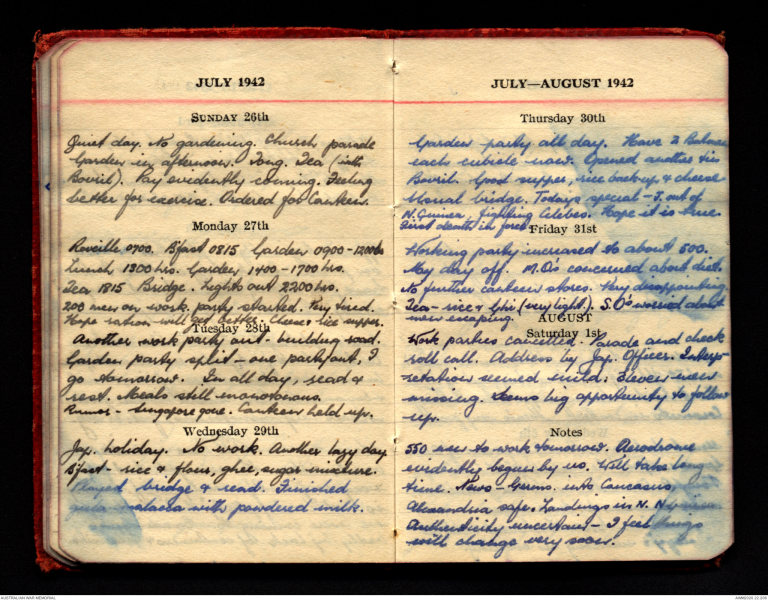 JULY 1942
SUNDAY 26th
Quiet day. No gardening. Church parade
Garden in afternoon. Pong. Tea (with
Bovril). Pay evidently coming. Feeling
better for exercise. Ordered for Canteen.
Monday 27th
Reveille 0700. B'fast 0815 Garden 0900-1200hrs
Lunch 1300 hrs. Garden 1400-1700 hrs.
Tea 1815 Bridge. Lights out 2200 hrs.
200 men on work party started. Very tired.
Hope ration will get better. Cheese & rice supper.
Tuesday 28th
Another work party out - building road.
Garden party split - one party out, I
go tomorrow. In all day, read &
rest. Meals still monotonous.
Rumor - Singapore gone. Canteen held up.
Wednesday 29th
Jap. holiday. No work. Another lazy day
B'fast - rice & flour, ghee, sugar mixture.
Played bridge & read. Finished
gula malacca with powdered milk.
JULY—AUGUST 1942
Thursday 30th
Garden party all day. Have 2
each cubicle now. Opened another tin
Bovril. Good supper, rice back-up & cheese
Usual bridge. Todays special - J. out of
N. Guinea, fighting Celebes. Hope it is true.
First death in force
Friday 31st
Working party increased to about 500.
My day off. M.O's concerned about diet.
No further canteen stores. Very disappointing
Tea - rice & (very light). S.O's worried about
men escaping.
AUGUST
Saturday 1st
Work parties cancelled. Parade and check
roll call. Address by Jap. Officer. Interp-
retation seemed mild. Eleven men
missing. Seems big opportunity to follow
up.
Notes
550 men to work tomorrow. Aerodrome
evidently begun by us. Will take long
time. News - Germs. into Caucasus,
Alexandria safe. Landings in N. N Guinea.
Authenticity uncertain - I feel things
will change very soon.
AUSTRALIAN WAR MEMORIAL